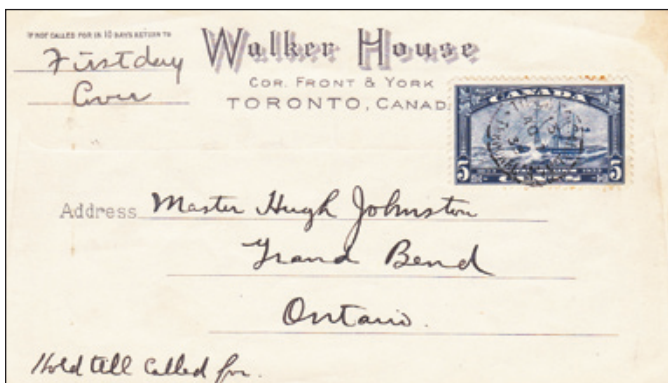 IF NOT CALLED FOR IN 10 DAYS RETURN TO
First day
Cover
Walker House
COR. FRONT & YORK
TORONTO, CANADA
CANADA
5 5
Address Master Hugh Johnston
Grand Bend
Ontario.
Hold till called for.